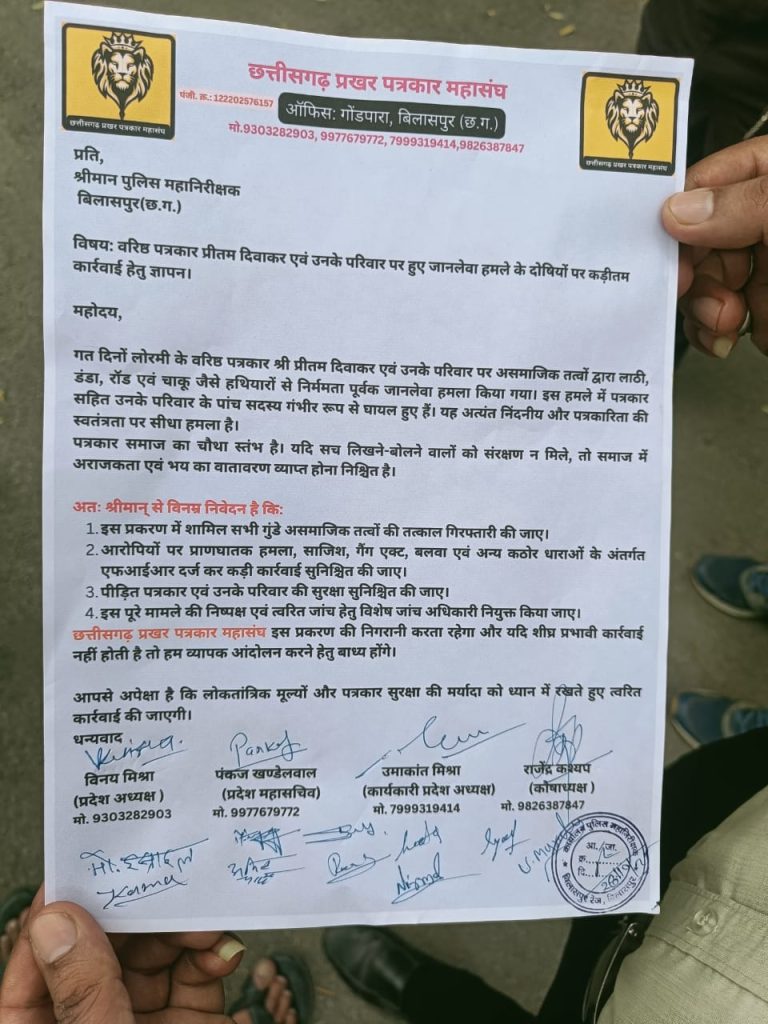 छत्तीसगढ़ प्रखर पत्रकार महासंघ
पंजी. क्र.: 122202576157
ऑफिस: गोंडपारा, बिलासपुर (छ.ग.)
मो.9303282903, 9977679772, 7999319414,9826387847
छत्तीसगढ़ प्रखर पत्रकार महासंघ
छत्तीसगढ़ प्रखर पत्रकार महासंघ
प्रति,
श्रीमान पुलिस महानिरीक्षक
बिलासपुर(छ.ग.)
विषय: वरिष्ठ पत्रकार प्रीतम दिवाकर एवं उनके परिवार पर हुए जानलेवा हमले के दोषियों पर कड़ीतम
कार्रवाई हेतु ज्ञापन।
महोदय,
गत दिनों लोरमी के वरिष्ठ पत्रकार श्री प्रीतम दिवाकर एवं उनके परिवार पर असमाजिक तत्वों द्वारा लाठी,
डंडा, रॉड एवं चाकू जैसे हथियारों से निर्ममता पूर्वक जानलेवा हमला किया गया। इस हमले में पत्रकार
सहित उनके परिवार के पांच सदस्य गंभीर रूप से घायल हुए हैं। यह अत्यंत निंदनीय और पत्रकारिता की
स्वतंत्रता पर सीधा हमला है।
पत्रकार समाज का चौथा स्तंभ है। यदि सच लिखने-बोलने वालों को संरक्षण न मिले, तो समाज में
अराजकता एवं भय का वातावरण व्याप्त होना निश्चित है।
अतः श्रीमान् से विनम्र निवेदन है कि:
1. इस प्रकरण में शामिल सभी गुंडे असमाजिक तत्वों की तत्काल गिरफ्तारी की जाए।
2. आरोपियों पर प्राणघातक हमला, साजिश, गैंग एक्ट, बलवा एवं अन्य कठोर धाराओं के अंतर्गत
एफआईआर दर्ज कर कड़ी कार्रवाई सुनिश्चित की जाए।
3. पीड़ित पत्रकार एवं उनके परिवार की सुरक्षा सुनिश्चित की जाए।
4. इस पूरे मामले की निष्पक्ष एवं त्वरित जांच हेतु विशेष जांच अधिकारी नियुक्त किया जाए।
छत्तीसगढ़ प्रखर पत्रकार महासंघ इस प्रकरण की निगरानी करता रहेगा और यदि शीघ्र प्रभावी कार्रवाई
नहीं होती है तो हम व्यापक आंदोलन करने हेतु बाध्य होंगे।
आपसे अपेक्षा है कि लोकतांत्रिक मूल्यों और पत्रकार सुरक्षा की मर्यादा को ध्यान में रखते हुए त्वरित
कार्रवाई की जाएगी।
धन्यवाद
Pankaj
विनय मिश्रा
(प्रदेश अध्यक्ष )
मो. 9303282903
पंकज खण्डेलवाल
(प्रदेश महासचिव)
मो. 9977679772
उमाकांत मिश्रा
(कार्यकारी प्रदेश अध्यक्ष)
मो. 7999319414
राजेंद्र कश्यप
(कोषाध्यक्ष )
मो. 9826387847
Nirmal
कार्यालय पुलिस महानिरीक्षक
आ./जा.
क्र.
दि.
बिलासपुर रेंज, बिलासपुर